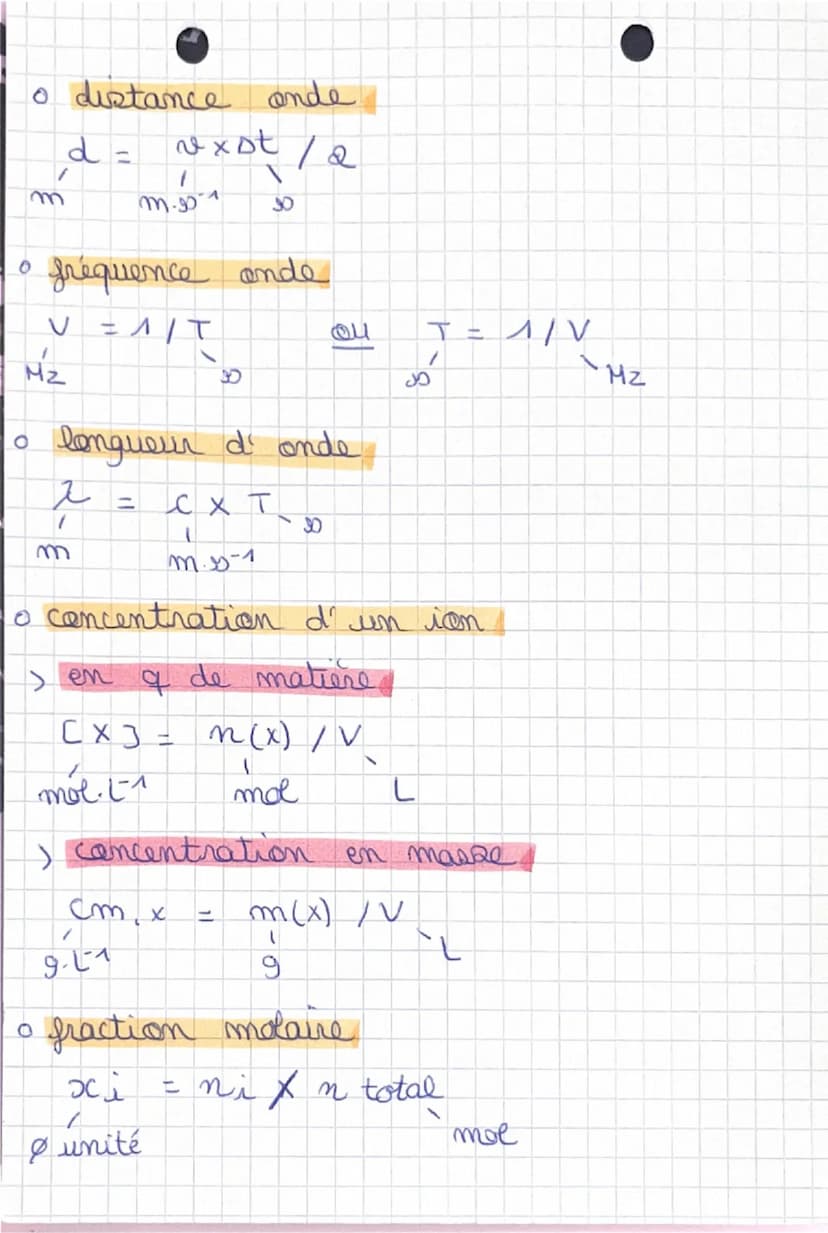 o distance onde
d = v x Δt / 2
m m.s-1 s
o fréquence onde
V = 1 / T ou T = 1 / V
Hz s s Hz
o longueur d'onde
λ = c x T s
m m.s-1
o concentration d'un ion
> en q de matière
[X] = n(x) / V
mol.L-1 mol L
> concentration en masse
Cm,x = m(x) / V
g.L-1 g L
o fraction molaire
xi = ni / n total
ø unité mol